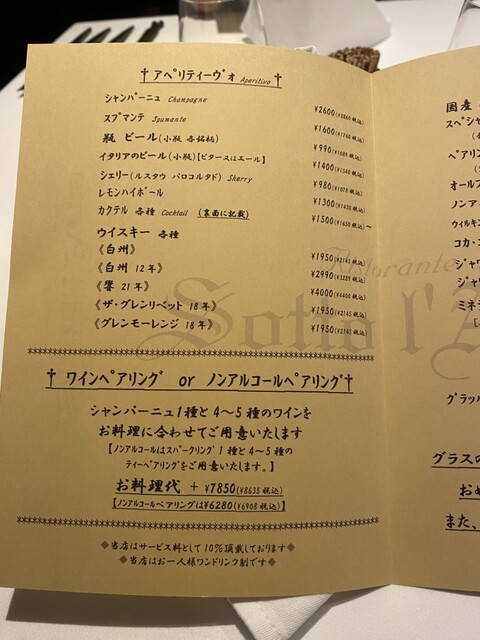 ✝ アペリティーヴォ Aperitivo ✝
シャンパーニュ Champagne ¥2600(¥2860税込)
スプマンテ Spumante ¥1600(¥1760税込)
瓶 ビール(小瓶 各銘柄) ¥990(¥1089税込)
イタリアのビール(小瓶)【ビター又はエール】 ¥1400(¥1540税込)
シェリー(ルスタウ パロコルタド) Sherry ¥980(¥1078税込)
レモンハイボール ¥1300(¥1430税込)
カクテル 各種 Cocktail (裏面に記載) ¥1500(¥1650税込)～
ウイスキー 各種
《白州》 ¥1950(¥2145税込)
《白州 12年》 ¥2990(¥3289税込)
《響 21年》 ¥4000(¥4400税込)
《ザ・グレンリベット 18年》 ¥1950(¥2145税込)
《グレンモーレンジ 18年》 ¥1950(¥2145税込)
✝ ワインペアリング or ノンアルコールペアリング✝
シャンパーニュ1種と4～5種のワインを
お料理に合わせてご用意いたします
【ノンアルコールはスパークリング1種と4～5種の
ティーペアリングをご用意いたします。】
お料理代 + ¥7850(¥8635税込)
【ノンアルコールペアリングは¥6280(¥6908税込)】
◆当店はサービス料として10%頂戴しております◆
◆当店はお一人様ワンドリンク制です◆
Ristorante
Sotto l'
国産
スペシャ
ペアリン
オールフ
ノンア
ウィルキン
コカ・コ
ジャワ
ジャ
ミネ
グラッパ
グラスの
おめ
また、